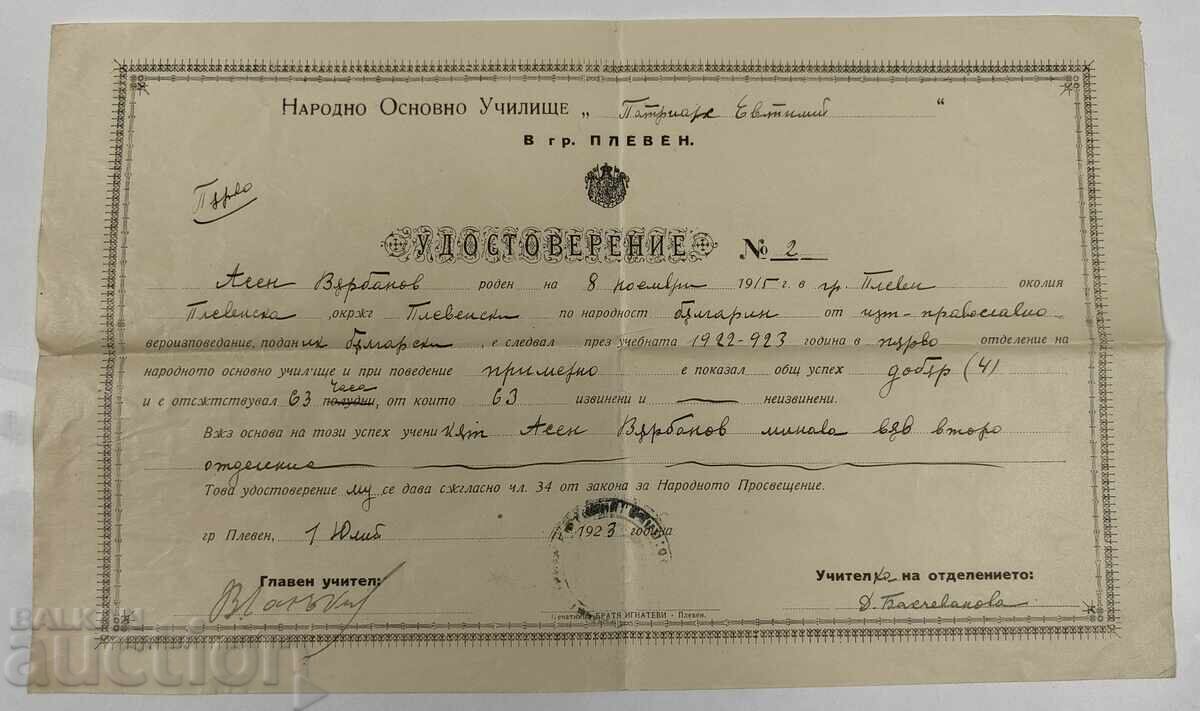 Народно Основно Училище „ Патриарх Евтимий "
В гр. ПЛЕВЕН.
Първо
УДОСТОВЕРЕНИЕ № 2
Асен Върбанов роден на 8 ноемврий 1915 г. в гр. Плевен околия
Плевенска, окржг Плевенски по народност българин от изт-православно
вероизповедание, поданик български, е следвал през учебната 1922-923 година в първо отделение на
народното основно училище и при поведение примерно е показал общ успех добър (4)
и е отсжтствувал 63 часа полудни, от които 63 извинени и — неизвинени.
Вжз основа на този успех ученикът Асен Върбанов минава във второ
отделение
Това удостоверение му се дава сжгласно чл. 34 от закона за Народното Просвещение.
гр Плевен, 1 Юлий 1923 година
Главен учител: Учителка на отделението:
Д. Бахчеванова
Печатница БРАТЯ ИГНАТЕВИ - Плевен.
BALKAN
auction